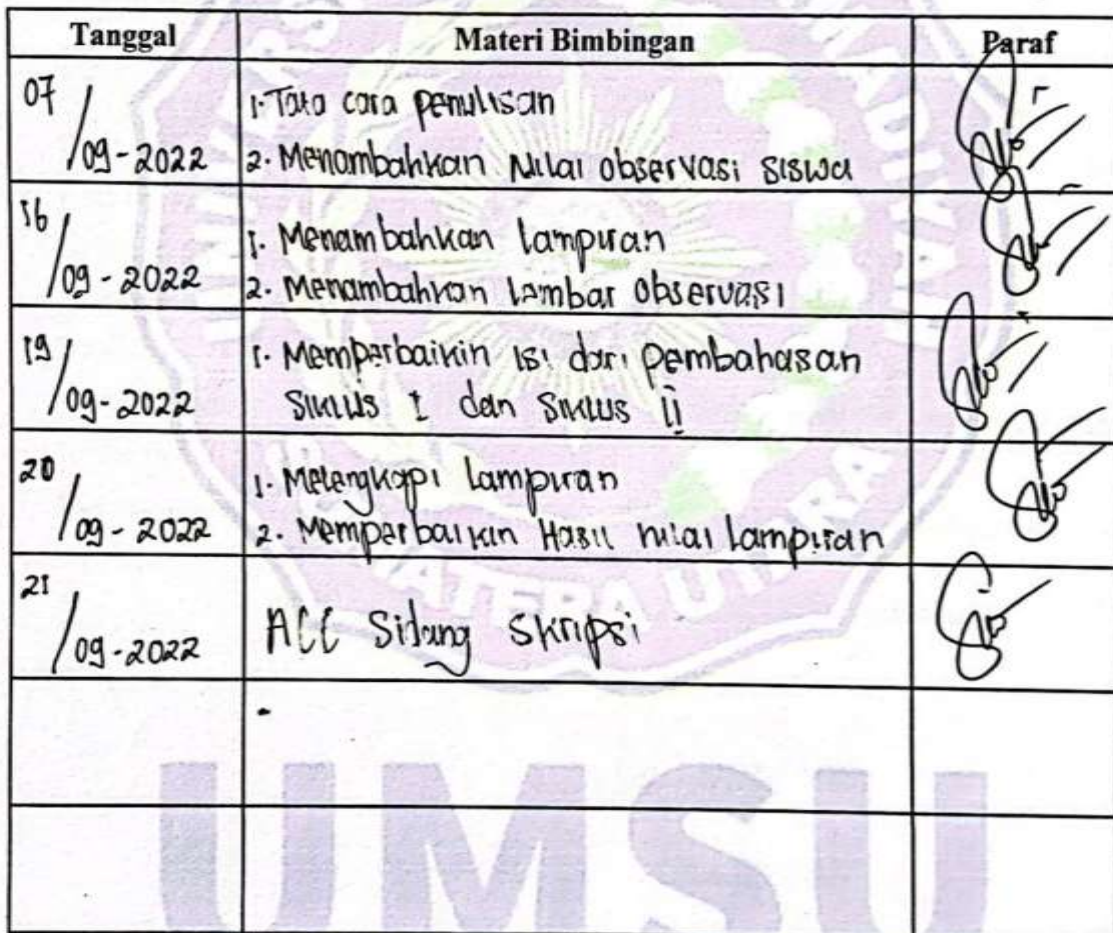 Tanggal Materi Bimbingan Paraf
07/09-2022
1. Tata cara penulisan
2. Menambahkan Nilai observasi siswa
16/09-2022
1. Menambahkan lampiran
2. Menambahkan lembar observasi
19/09-2022
1. Memperbaikin isi dari pembahasan
siklus I dan siklus ii
20/09-2022
1. Melengkapi lampiran
2. Memperbaikin Hasil nilai lampiran
21/09-2022
ACC Sidang Skripsi
UMSU